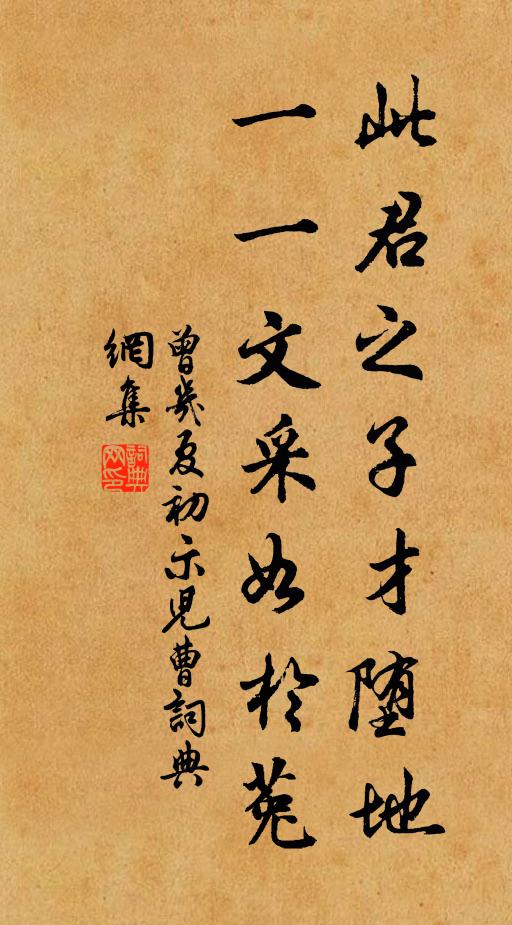 此君之子才堕地
一一文采如於菟
曾幾夏初示児曹詞典
網集
詞典
网印